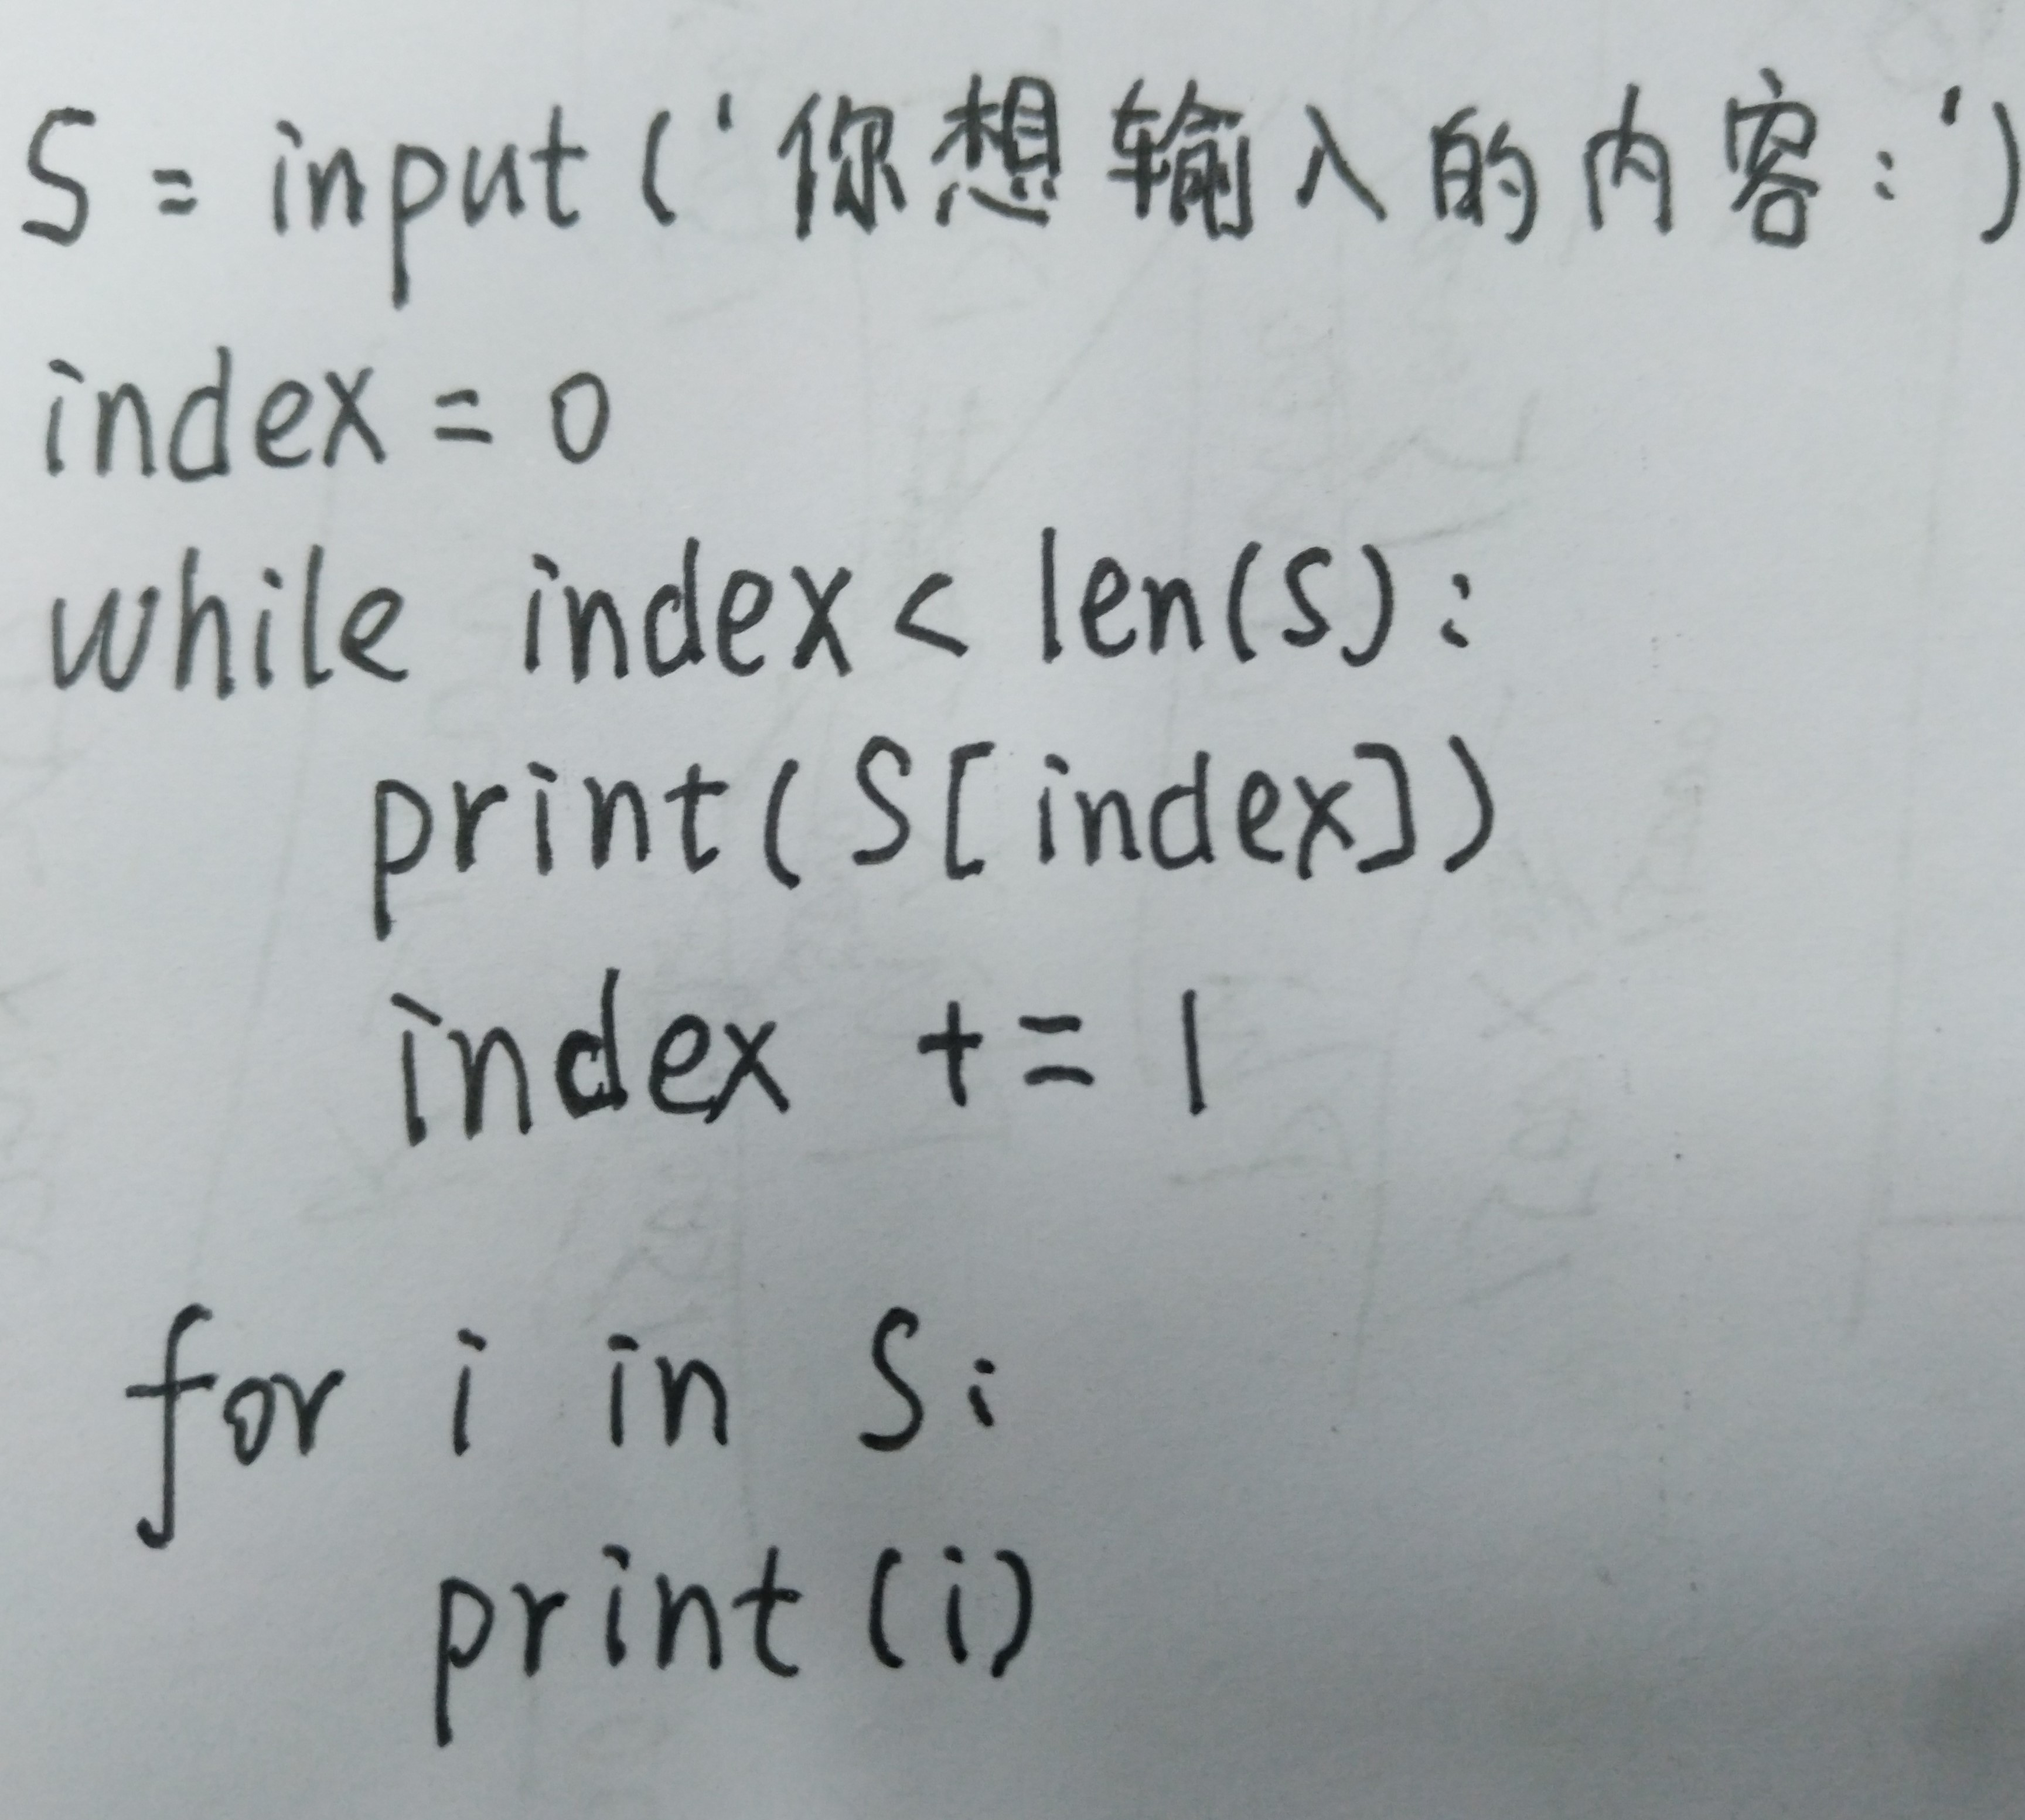 S = input('你想输入的内容:')
index = 0
while index < len(S):
    print(S[index])
    index += 1
for i in S:
    print(i)